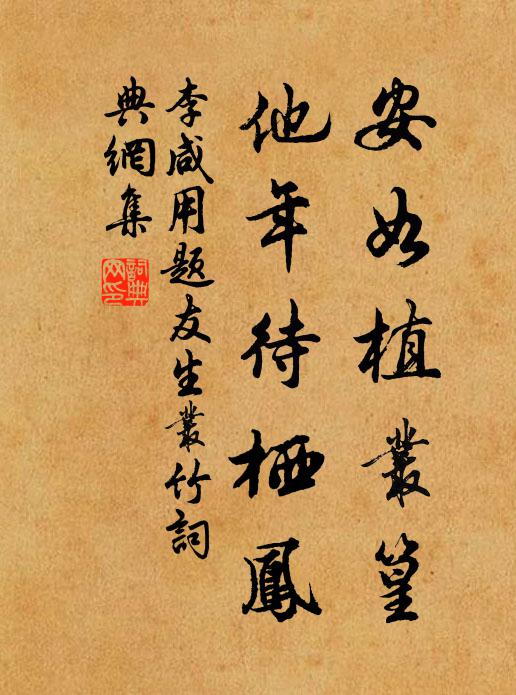 安如植叢篁
他年待栖鳳
李咸用題友生叢竹詞
典網集
詞典網印